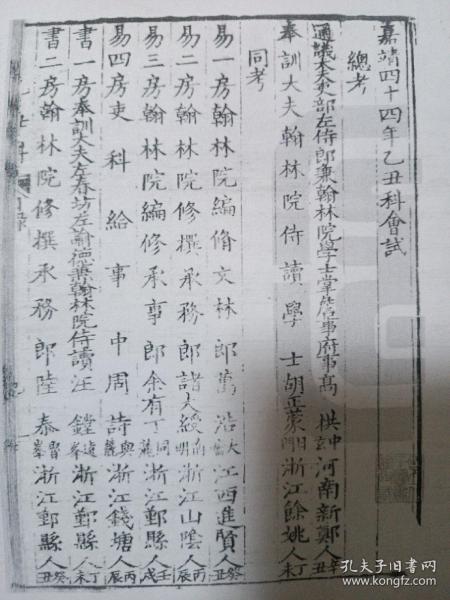 嘉靖四十四年乙丑科會試
總考
通議大夫吏部左侍郎兼翰林院學士掌詹事府事高 拱中玄河南新鄭人辛丑
奉訓大夫翰林院侍讀學士胡正蒙 浙江餘姚人丁未
同考
易一房翰林院編脩文林郎萬 浩 江西進賢人癸丑
易二房翰林院修撰承務郎諸大綬 明浙江山陰人丙辰
易三房翰林院編修承事郎余有丁同麓浙江鄞縣人壬戌
易四房吏科給事中周 詩與鹿浙江錢塘人丙辰
書一房奉訓大夫左春坊左諭德兼翰林院侍讀汪 鏜遠峯浙江鄞縣人丁未
書二房翰林院修撰承務郎陸 泰 峯浙江鄞縣人癸丑
目錄
孔夫子旧书网